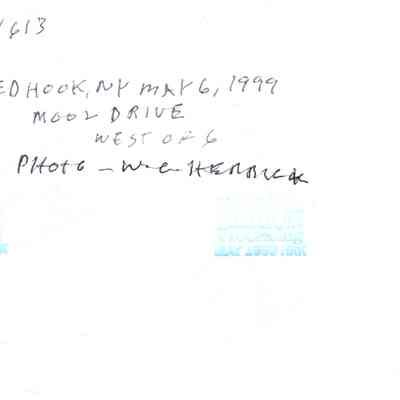 613
ED HOOK, NY MAY 6, 1999
MOOZ DRIVE
WEST OF 6
PHOTO - W.C. HERRICK
MAY 1999